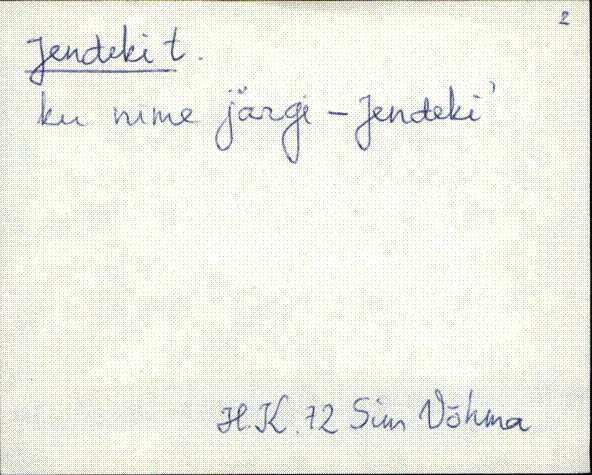 2
Jendeki t.
ku nime järgi – Jendeki'
H.K. 72 Sim Võhma